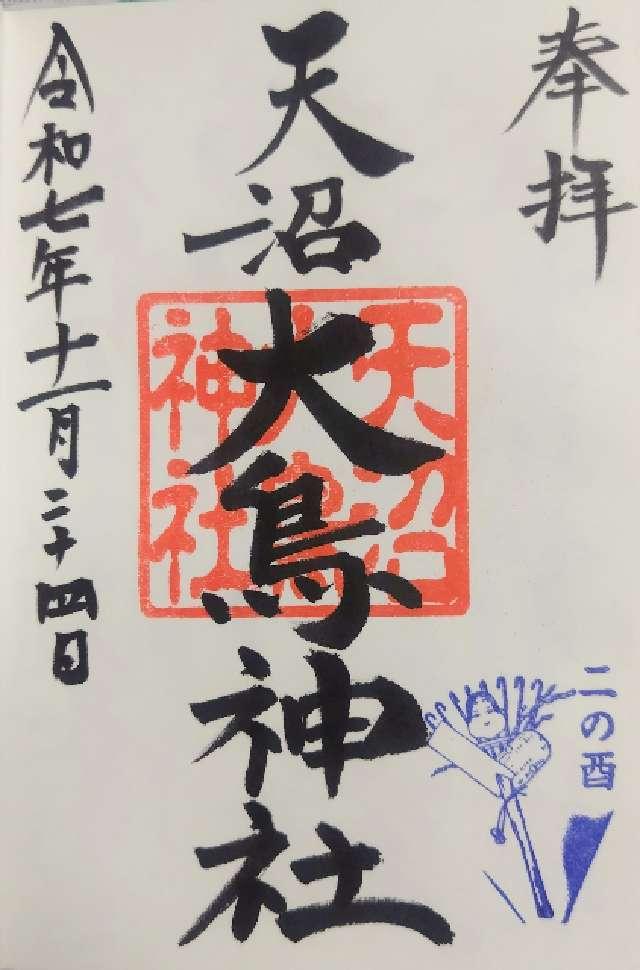 奉拝
天沼大鳥神社
天沼
大鳥
神社
二の酉
令和七年十一月二十四日